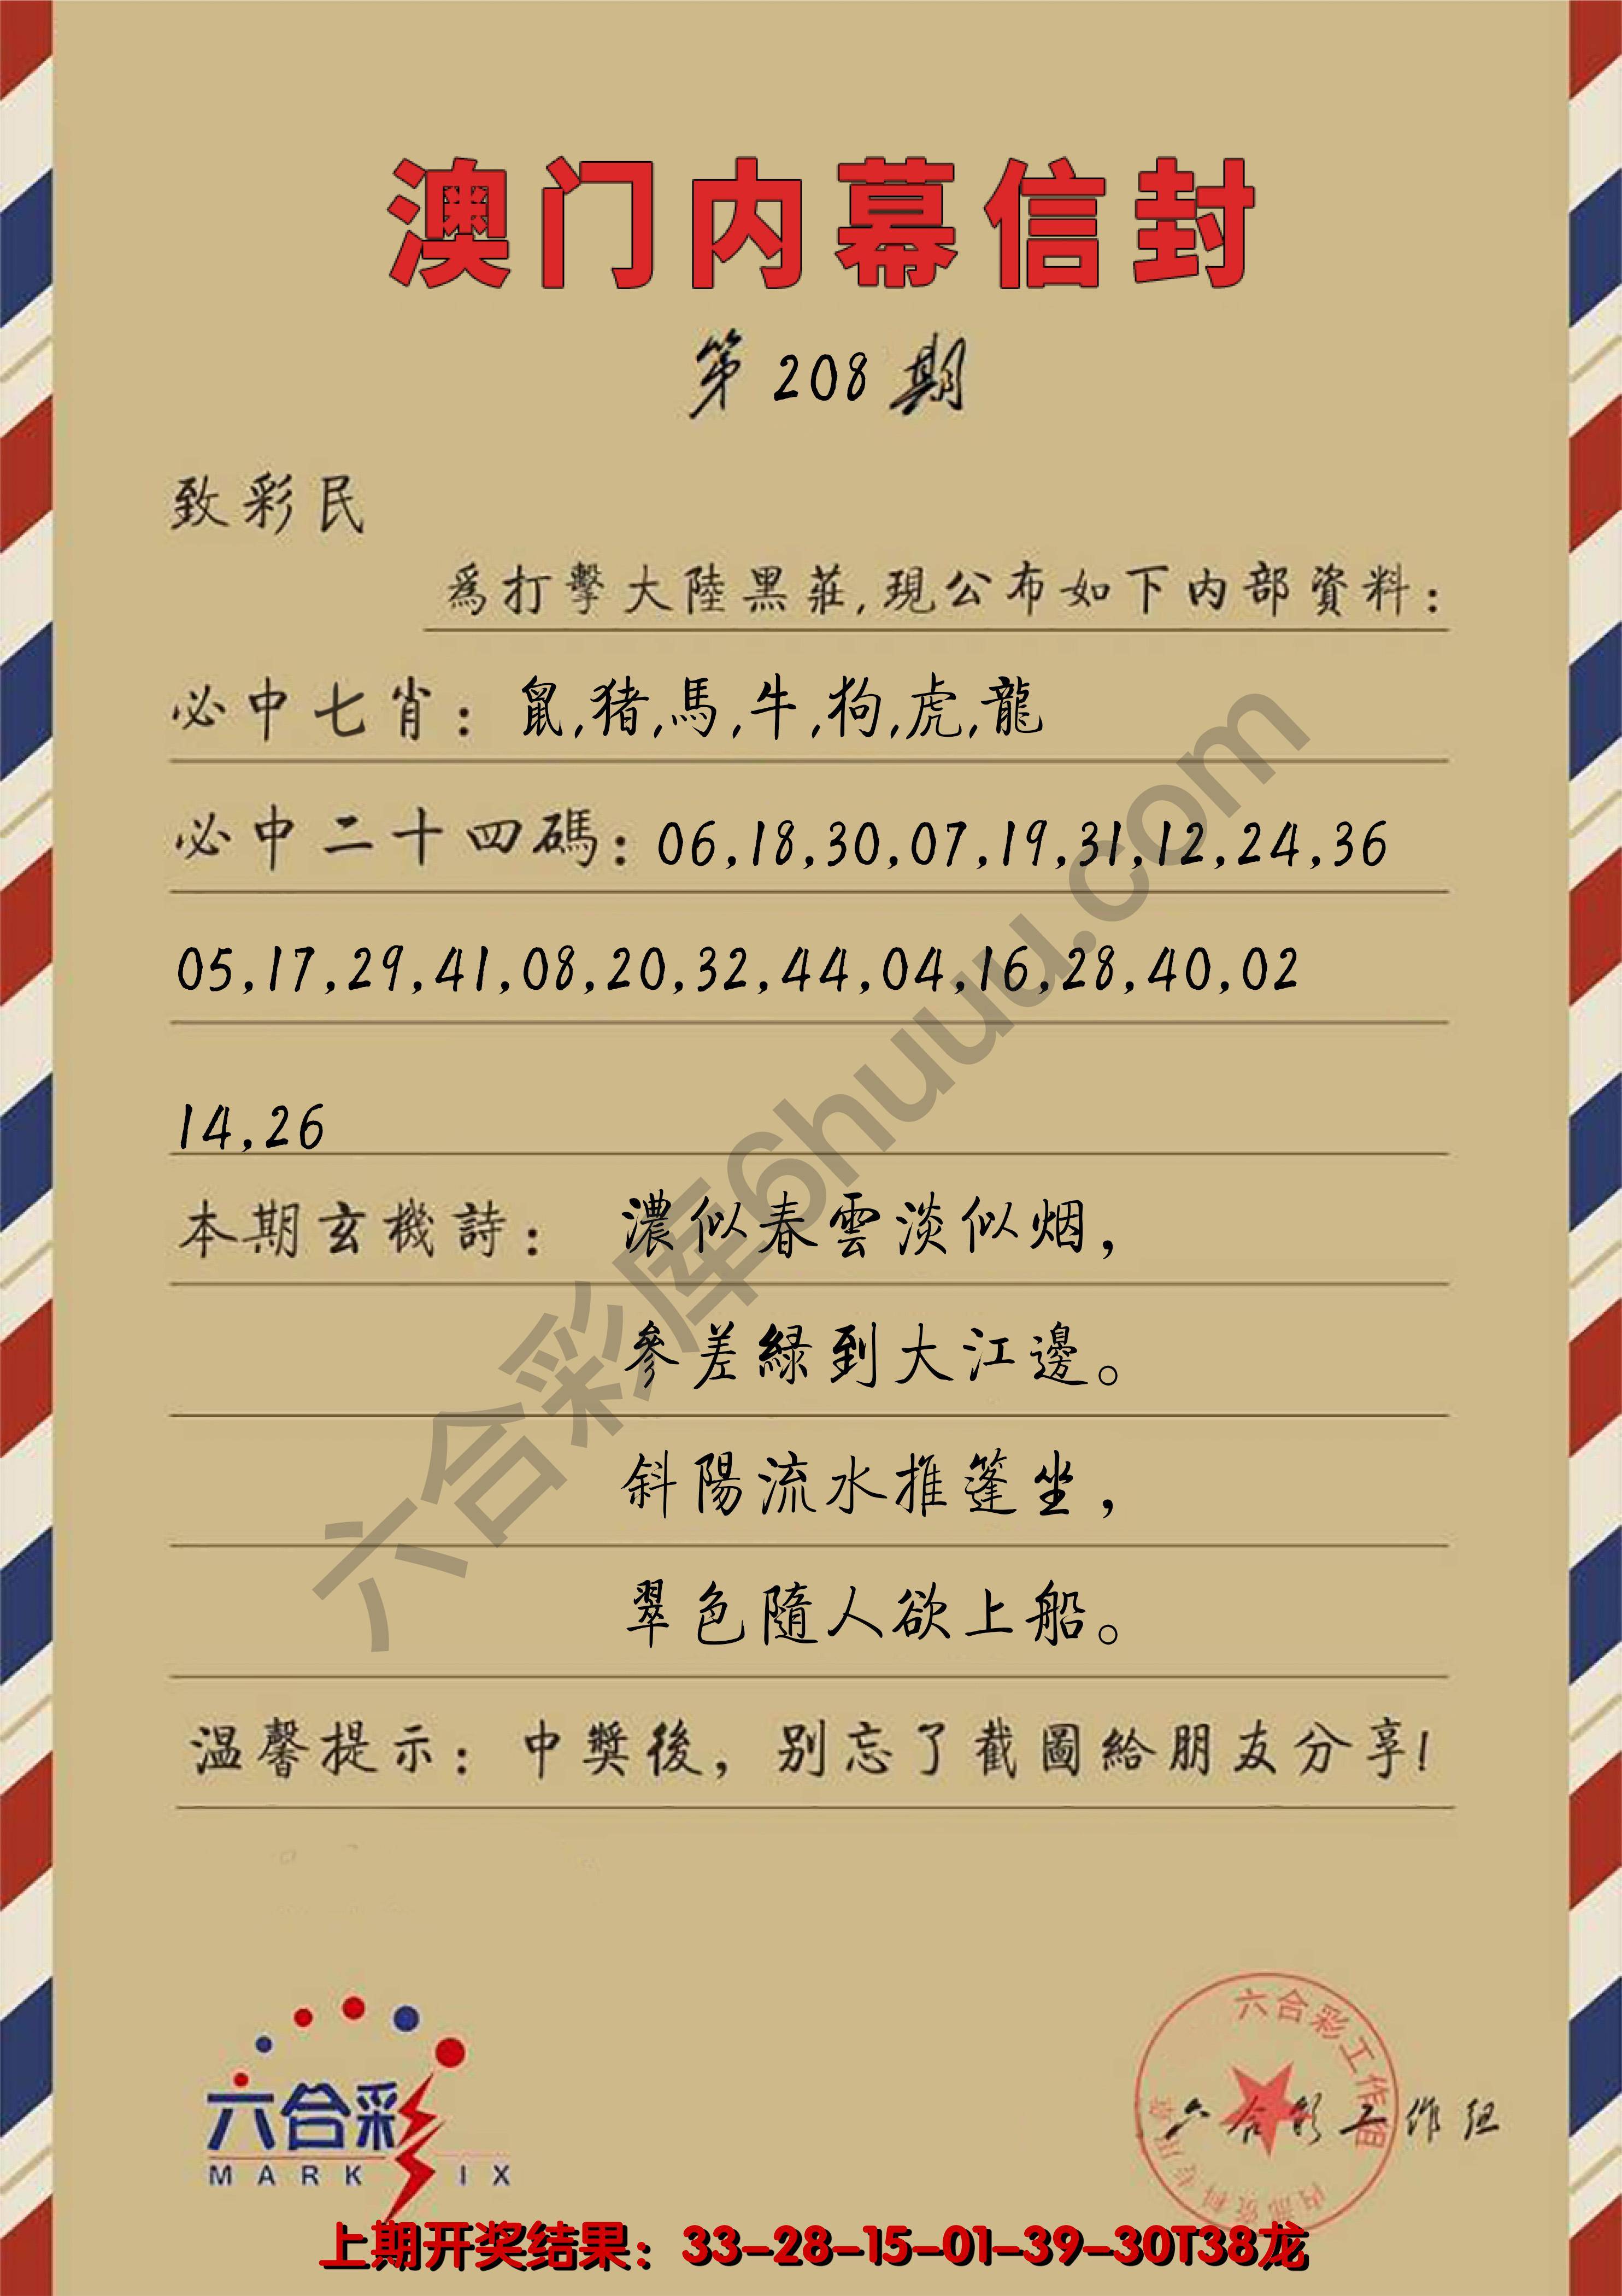 澳门内幕信封
第208期
致彩民
爲打擊大陸黑莊,現公布如下内部資料:
必中七肖: 鼠,猪,馬,牛,狗,虎,龍
必中二十四碼: 06,18,30,07,19,31,12,24,36
05,17,29,41,08,20,32,44,04,16,28,40,02
14,26
本期玄機詩: 濃似春雲淡似烟,
參差緑到大江邊。
斜陽流水推篷坐,
翠色隨人欲上船。
温馨提示: 中獎後,别忘了截圖給朋友分享!
六合彩库6huuu.com
六合彩
MARK IX
六合彩工作组
内部资料专用章
六合彩工作组
上期开奖结果:33-28-15-01-39-30T38龙